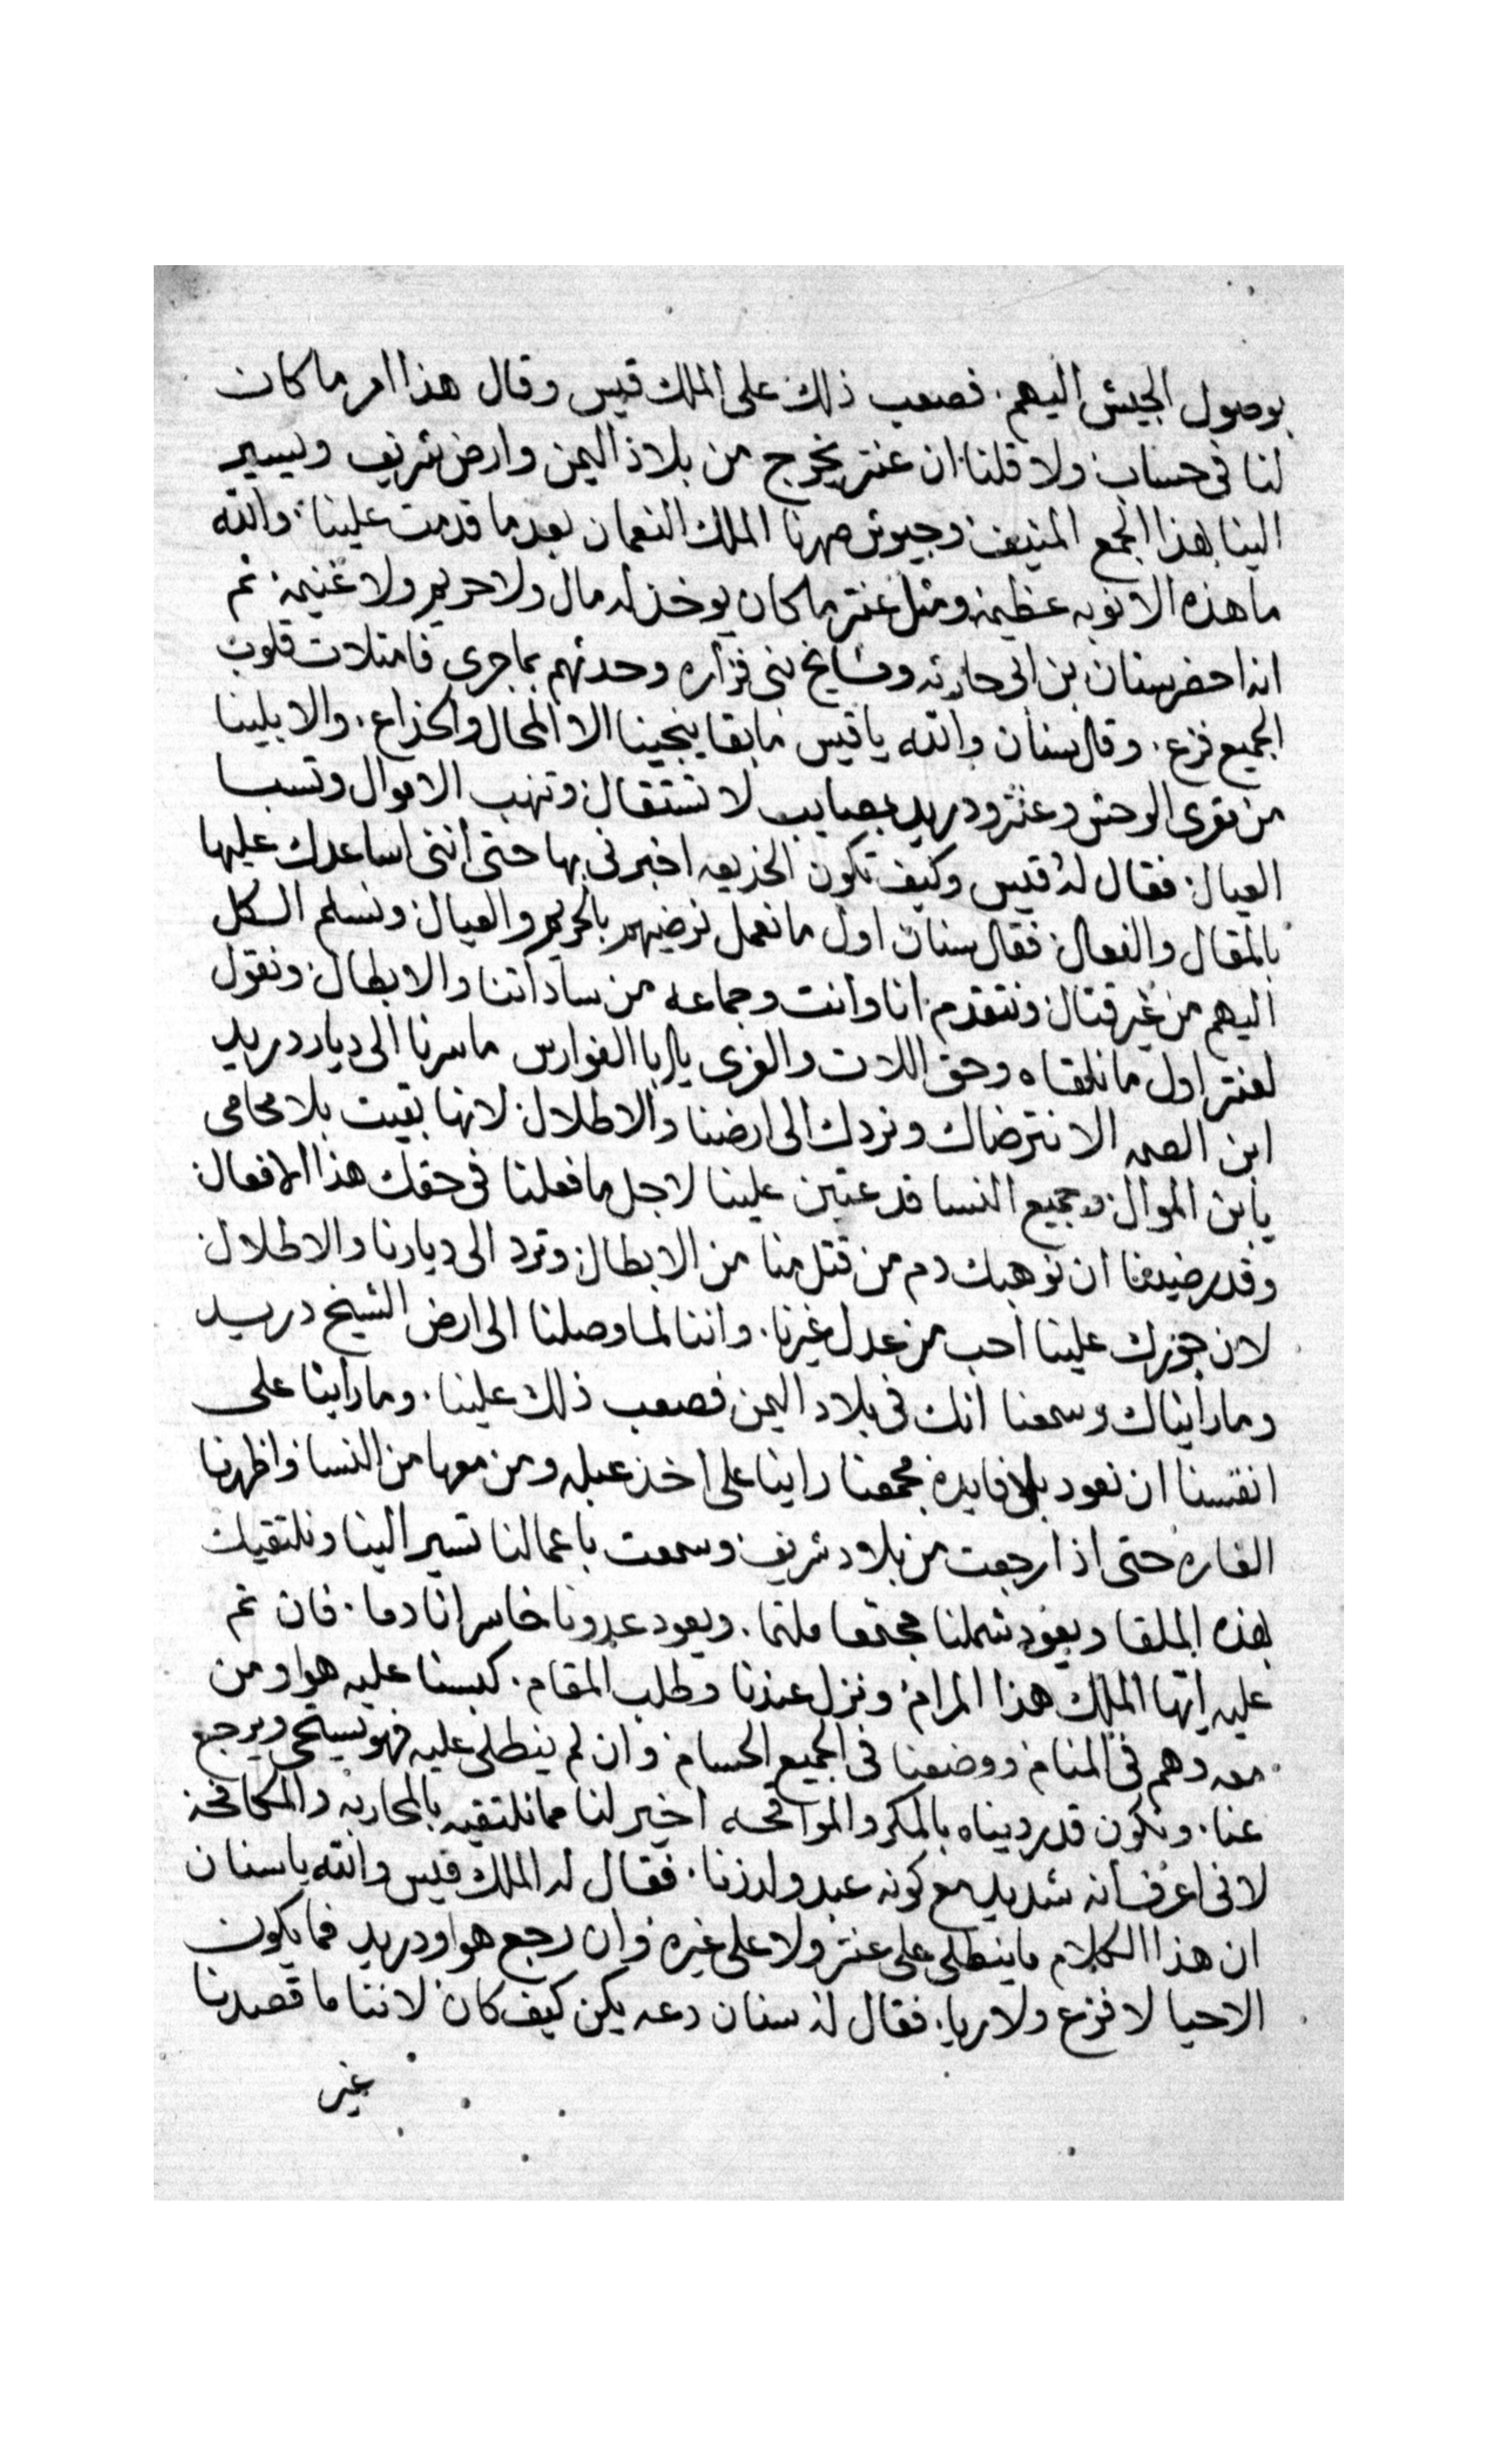 بوصول الجيش اليهم. فصعب ذلك على الملك قيس وقال هذا امر ما كان
لنا فى حساب ولا قلنا ان عنتر يخرج من بلاد اليمن وارض شريف ويسير
الينا بهذا الجمع المنيف وجيوش صهرنا الملك النعمان بعد ما قدمت علينا. والله
ما هذه الا نوبه عظيمة ومثل عنتر ما كان يوخذ له مال ولا حريم ولا غنيمة ثم
انه احضر سنان بن ابى حارثه ومشايخ بنى فزاره وحدثهم بما جرى فامتلات قلوب
الجميع فزع. وقال سنان والله يا قيس ما بقا ينجينا الا المحال والخداع. والا بلينا
من مقرى الوحش وعنتر ودريد بمصايب لا تستقال وتنهب الاموال وتسبا
العيال فقال له قيس وكيف تكون الخديعه اخبرنى بها حتى اننى اساعدك عليها
بالمقال والفعال فقال سنان اول ما نعمل نرضيهم بالحريم والعيال ونسلم الكل
اليهم من غير قتال ونتقدم انا وانت وجماعه من ساداتنا والابطال ونقول
لعنتر اول ما نلقاه وحق اللات والعزى يا ابا الفوارس ما سرنا الى ديار دريد
ابن الصمه الا نترضاك ونردك الى ارضنا والاطلال لانها بقيت بلا محامى
يا بن الموال وجميع النسا قد عتبن علينا لاجل ما فعلنا فى حقك هذا الافعال
وقد رضينا ان نوهبك دم من قتل منا من الابطال وترد الى ديارنا والاطلال
لان جورك علينا احب من عدل غيرنا. واننا لما وصلنا الى ارض الشيخ دريد
وما رايناك وسمعنا انك فى بلاد اليمن فصعب ذلك علينا. وما راينا على
انفسنا ان نعود بلا فايدة فجمعنا راينا على اخذ عبله ومن معها من النسا واظهرنا
الغاره حتى اذا رجعت من بلاد شريف وسمعت باعمالنا تسير الينا ونلتقيك
بهذه الملقا ويعود شملنا مجتمعا ملتما. ويعود عدونا خاسرا نادما. فان تم
عليه ايها الملك هذا المرام ونزل عندنا وطلب المقام. كبسنا عليه هوا ومن
معه وهم فى المنام ووضعنا فى الجميع الحسام وان لم ينطلى عليه فهو يستحى ويرجع
عنا. ونكون قد رديناه بالمكر والمواقحه اخير لنا مما نلتقيه بالمحاربه والمكافحة
لانى اعرف انه شديد مع كونه عبد ولد زنا. فقال له الملك قيس والله يا سنان
ان هذا الكلام ما ينطلى على عنتر ولا على غيره وان رجع هوا ودريد فما يكون
الاحيا لا فزع ولا ريا. فقال له سنان دعه يكن كيف كان لاننا ما قصدنا
غير